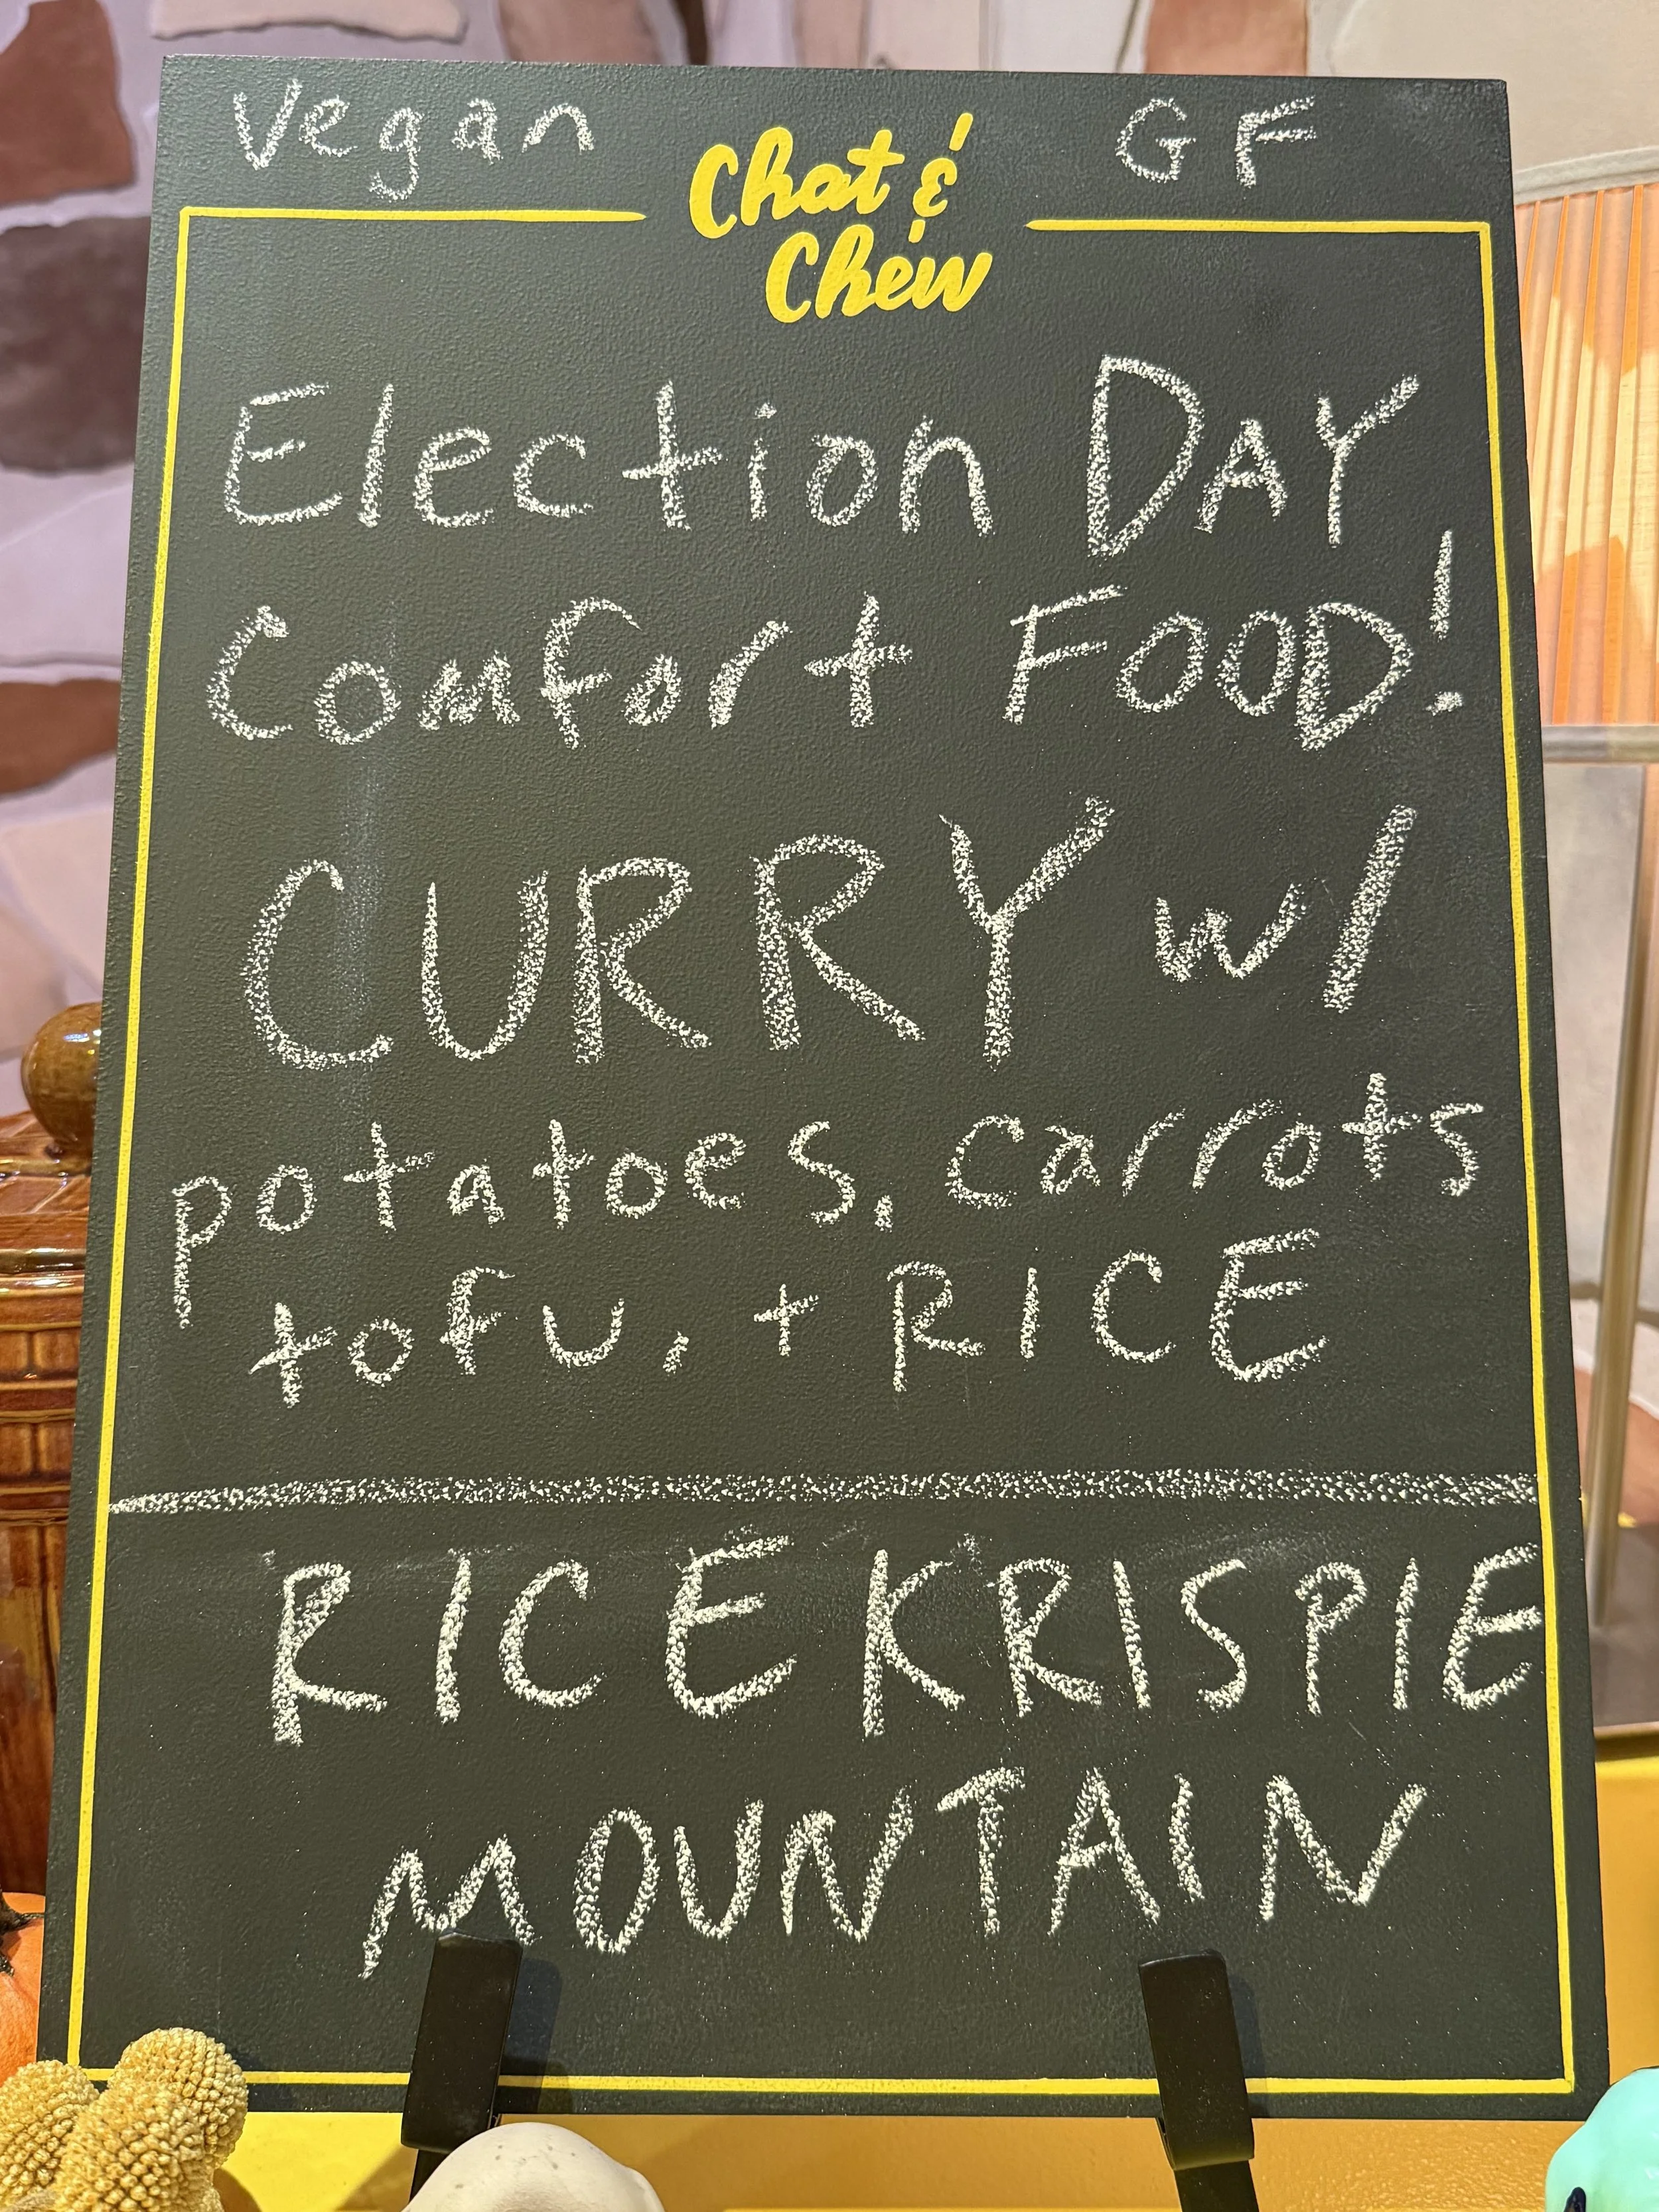 Vegan GF
Chat &
Chew
Election DAY
Comfort FOOD!
CURRY w/
potatoes, carrots
tofu, + RICE
RICE KRISPIE
MOUNTAIN